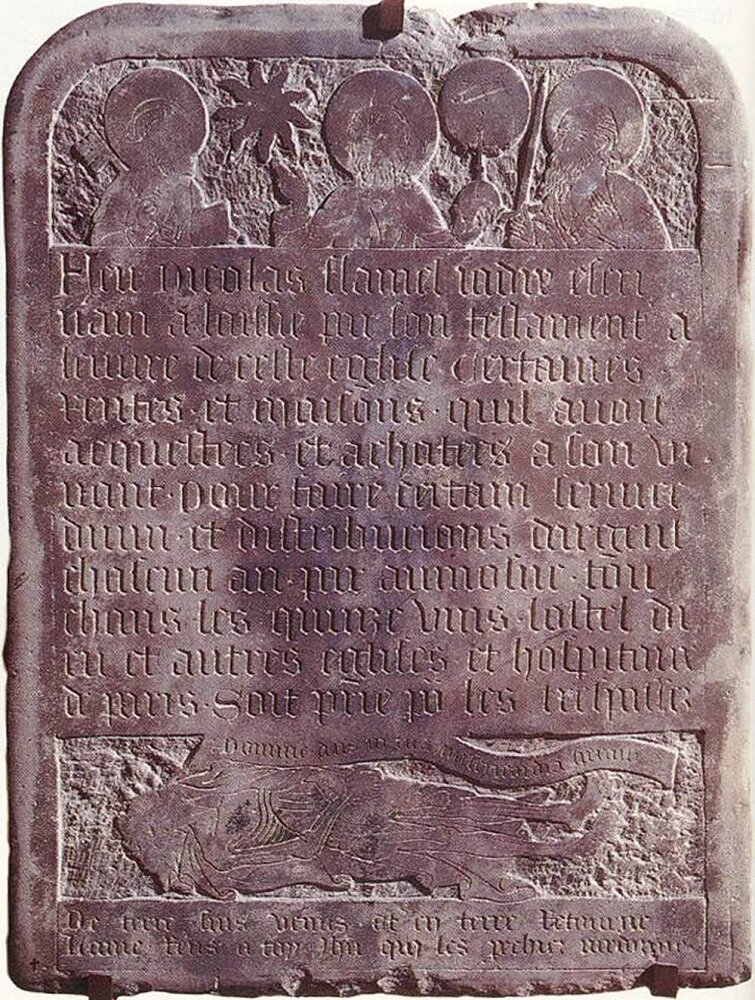 Feu nicolas flamel iadis escri
uain a laissie par son testament a
leuure de ceste eglise certaines
rentes et maisons · quil auoit
acquestees et achatees a son vi
uant · pour faire certain seruice
diuin · et distribucions dargent
chascun an · par aumosne · tou
chans · les quinze vins · lostel di
eu et autres eglises et hospitaux
de paris · Soit prie po les trespasses
Domine deus in tua misericordia speraui
De terre suis venus et en terre retourne
Lame rens a toy ihu qui les pechiez pardonne